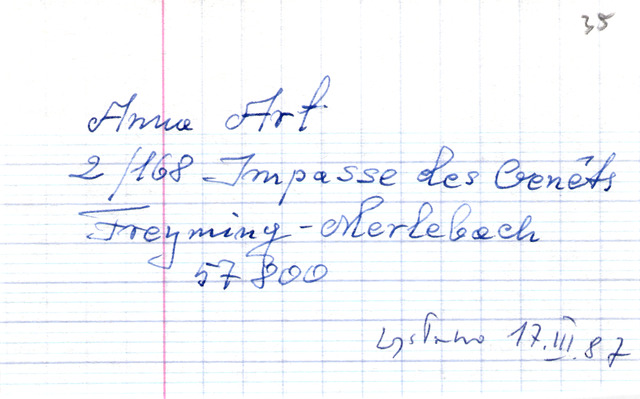 35
Anna Art
2/168 Impasse des Genêts
Freyming-Merlebach
57800
17.III.87